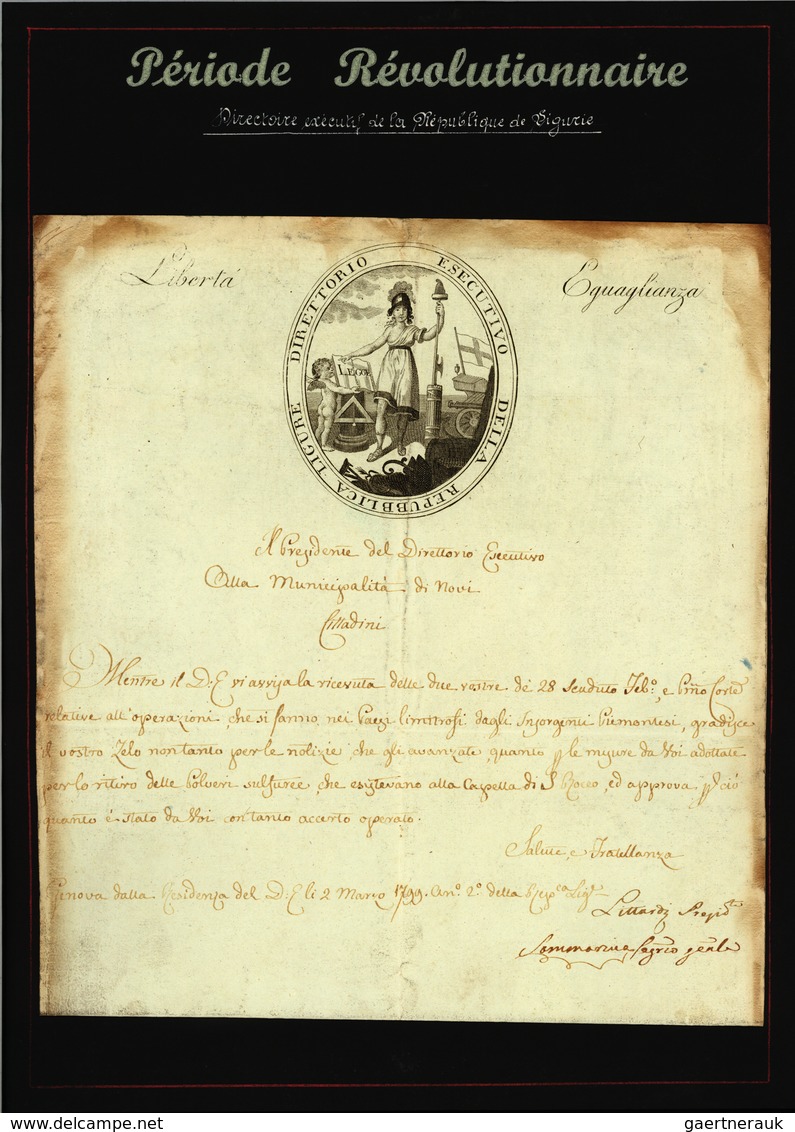 Période Révolutionnaire
Directoire exécutif de la République de Ligurie
Libertá
Eguaglianza
DIRETTORIO ESECUTIVO DELLA REPUBBLICA LIGURE
LEGGE
Il Presidente del Direttorio Esecutivo
Alla Municipalità di Novi
Cittadini
Mentre il D. E. vi avvisa la ricevuta delle due vostre de 28 scaduto Feb.o, e Pmo Corte
relative all'operazioni, che si fanno, nei Paesi limitrofi dagli Insorgenti Piemontesi, gradisce
il vostro Zelo non tanto per le notizie, che gli avanzate, quanto p le misure da Voi adottate
per lo ritiro delle Polveri sulfuree, che esistevano alla Capella di S. Rocco, ed approva p ciò
quanto é stato da Voi con tanto accerto operato.
Salute, e Fratellanza
Genova dalla Residenza del D. E. li 2 Marzo 1799. An.o 2.o della Rep.ca Lig.e
Littardi Presid.te
Sommariva, Segrio genle
gaertnerauk